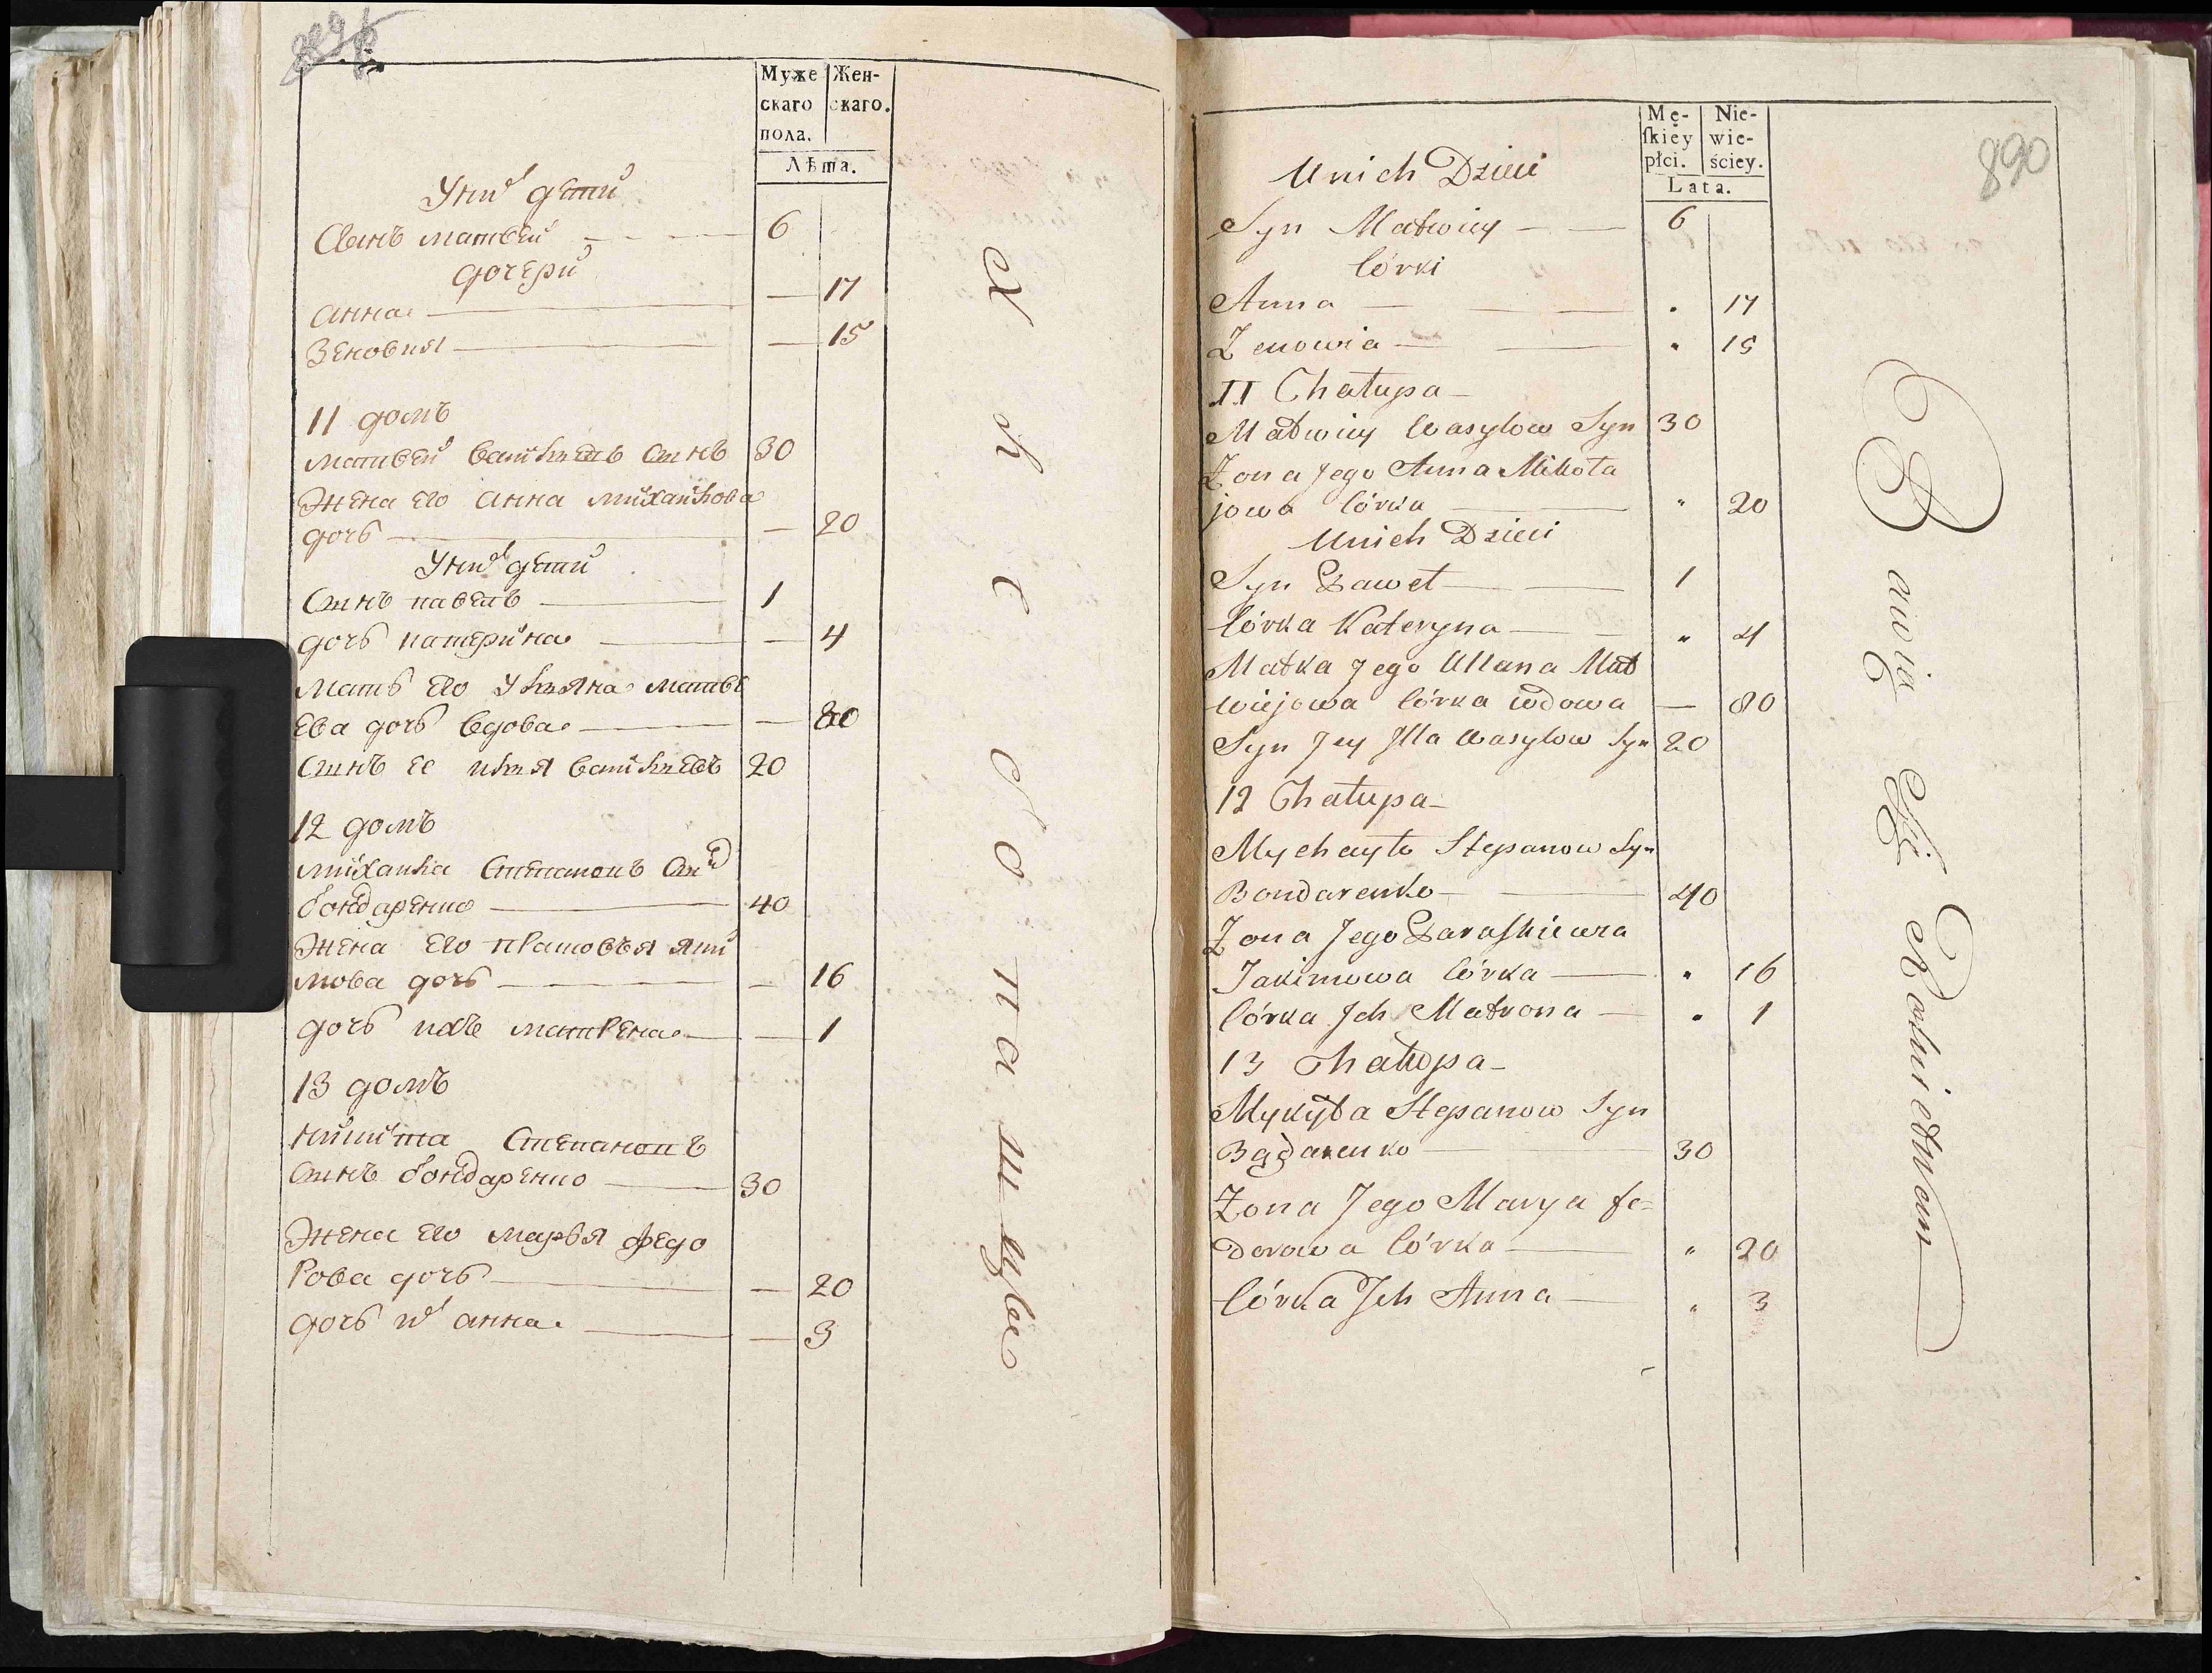 Муже Жен-
скаго скаго.
пола.
Лѣта.
Уних дети
Сынъ матвей 6
дочери
анна 17
Зеновия 15
11 домъ
матвей василевъ сынъ 30
Жена его анна михайлова
дочь 20
Уних дети
Сынъ павелъ 1
дочь катерина 4
Мать его Ульяна матве
ева дочь вдова 80
Сынъ ее илья василевъ 20
12 домъ
михайла Степановъ сын
бондаренко 40
Жена его прасковья яки
мова дочь 16
дочь ихъ матрена 1
13 домъ
никита Степановъ
сынъ бондаренко 30
Жена его марья федо
рова дочь 20
дочь их анна 3
890
Mę- Nie-
skiéy wie-
płci. ściey.
Lata.
Unich Dzieci
Syn Matwiey 6
Córki
Anna " 17
Zenowia " 15
11 Chałupa
Matwiey Wasylow Syn 30
Żona Jego Anna Mikoła
jowa Córka " 20
Unich Dzieci
Syn Paweł 1
Córka Kateryna " 4
Matka Jego Ullana Mat
wiejowa Córka wdowa — 80
Syn Jey Illa Wasylow Syn 20
12 Chałupa
Mychayło Stepanow Syn
Bondarenko 40
Żona Jego Paraskiewia
Jakimowa Córka " 16
Córka Jch Matrona " 1
13 Chałupa
Mykyta Stepanow Syn
Bądarenko 30
Żona Jego Marya fe=
dorowa Córka " 20
Córka Jch Anna " 3